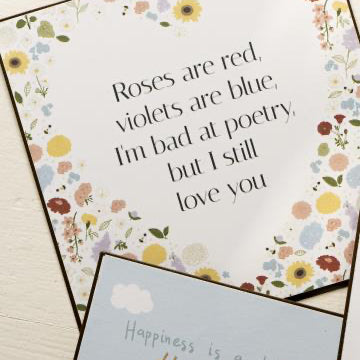 Roses are red,
violets are blue,
I'm bad at poetry,
but I still
love you
Happiness is a